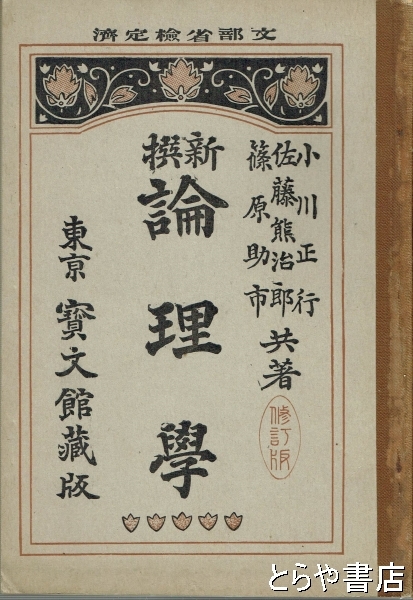 文部省檢定濟
小川正行
佐藤熊治郎
篠原助市
共著
修訂版
新撰
論理學
東京 寳文館藏版
とらや書店